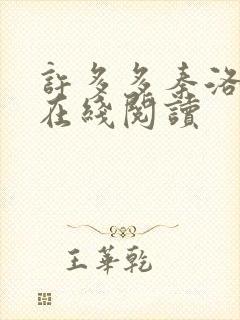 許多多秦洛
在綫閱讀
王華乾